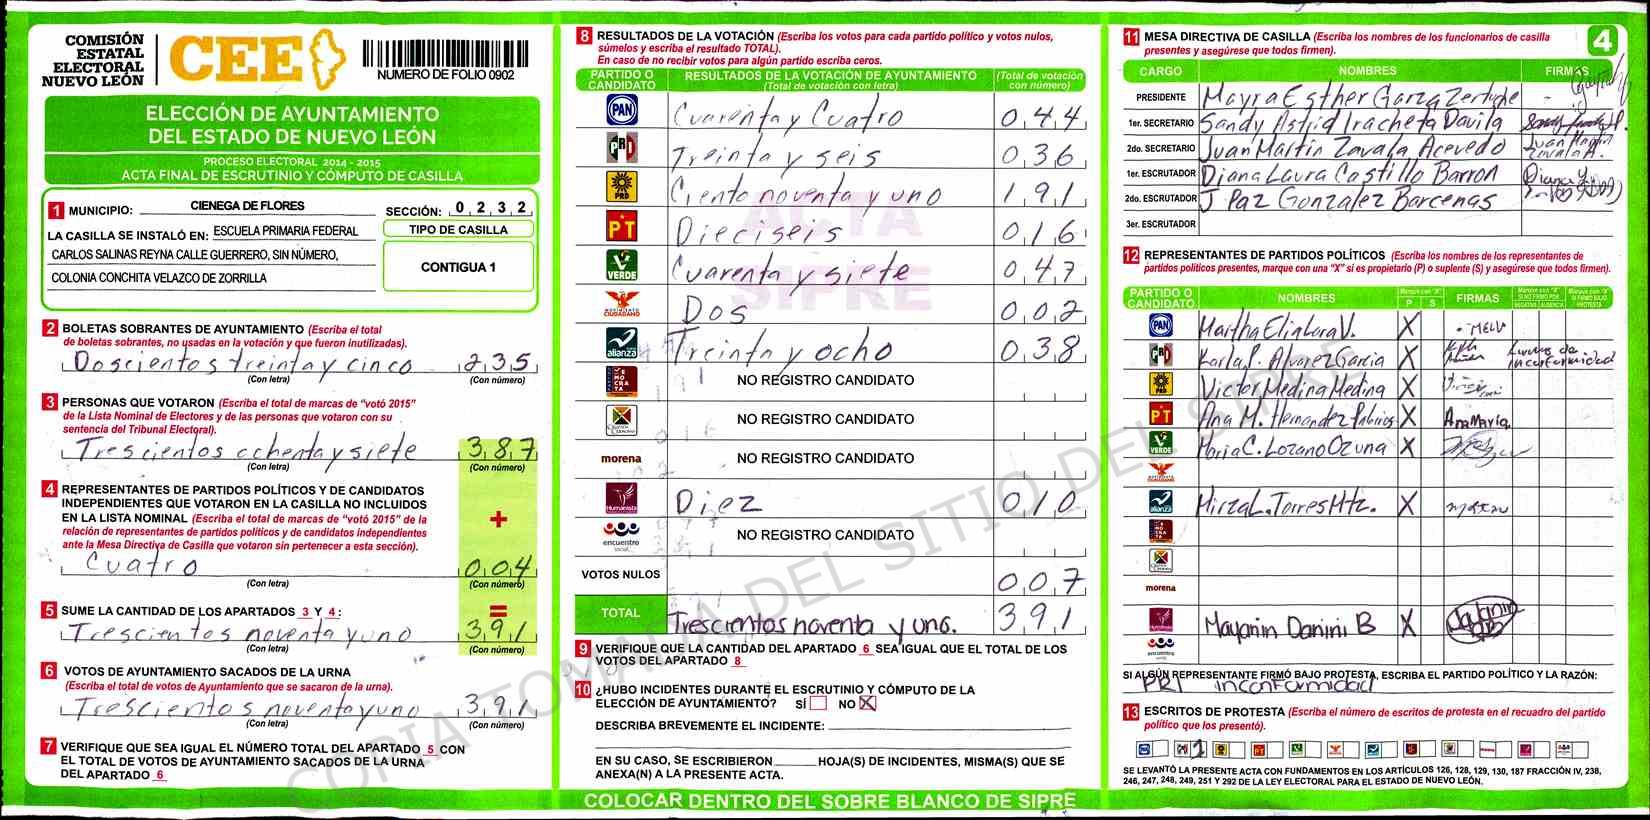 COMISIÓN
ESTATAL
ELECTORAL
NUEVO LEÓN
CEE
NUMERO DE FOLIO 0902
ELECCIÓN DE AYUNTAMIENTO
DEL ESTADO DE NUEVO LEÓN
PROCESO ELECTORAL 2014 - 2015
ACTA FINAL DE ESCRUTINIO Y CÓMPUTO DE CASILLA
1 MUNICIPIO: CIENEGA DE FLORES SECCIÓN: 0 2 3 2
LA CASILLA SE INSTALÓ EN: ESCUELA PRIMARIA FEDERAL
CARLOS SALINAS REYNA CALLE GUERRERO, SIN NÚMERO,
COLONIA CONCHITA VELAZCO DE ZORRILLA
TIPO DE CASILLA
CONTIGUA 1
2 BOLETAS SOBRANTES DE AYUNTAMIENTO (Escriba el total
de boletas sobrantes, no usadas en la votación y que fueron inutilizadas).
Doscientos treinta y cinco 2 3 5
(Con letra) (Con número)
3 PERSONAS QUE VOTARON (Escriba el total de marcas de "votó 2015"
de la Lista Nominal de Electores y de las personas que votaron con su
sentencia del Tribunal Electoral).
Trescientos ochenta y siete 3 8 7
(Con letra) (Con número)
4 REPRESENTANTES DE PARTIDOS POLÍTICOS Y DE CANDIDATOS
INDEPENDIENTES QUE VOTARON EN LA CASILLA NO INCLUIDOS
EN LA LISTA NOMINAL (Escriba el total de marcas de "votó 2015" de la
relación de representantes de partidos políticos y de candidatos independientes
ante la Mesa Directiva de Casilla que votaron sin pertenecer a esta sección).
+
Cuatro 0 0 4
(Con letra) (Con número)
5 SUME LA CANTIDAD DE LOS APARTADOS 3 Y 4: =
Trescientos noventa y uno 3 9 1
(Con letra) (Con número)
6 VOTOS DE AYUNTAMIENTO SACADOS DE LA URNA
(Escriba el total de votos de Ayuntamiento que se sacaron de la urna).
Trescientos noventa y uno 3 9 1
(Con letra) (Con número)
7 VERIFIQUE QUE SEA IGUAL EL NÚMERO TOTAL DEL APARTADO 5 CON
EL TOTAL DE VOTOS DE AYUNTAMIENTO SACADOS DE LA URNA
DEL APARTADO 6
8 RESULTADOS DE LA VOTACIÓN (Escriba los votos para cada partido político y votos nulos,
súmelos y escriba el resultado TOTAL).
En caso de no recibir votos para algún partido escriba ceros.
PARTIDO O CANDIDATO RESULTADOS DE LA VOTACIÓN DE AYUNTAMIENTO (Total de votación con letra) (Total de votación con número)
PAN Cuarenta y Cuatro 0 4 4
PRI Treinta y seis 0 3 6
PRD Ciento noventa y uno 1 9 1
PT Dieciseis 0 1 6
VERDE Cuarenta y siete 0 4 7
MOVIMIENTO CIUDADANO Dos 0 0 2
alianza Treinta y ocho 0 3 8
DEMOCRATA NO REGISTRO CANDIDATO
NO REGISTRO CANDIDATO
morena NO REGISTRO CANDIDATO
Humanista Diez 0 1 0
encuentro social NO REGISTRO CANDIDATO
VOTOS NULOS 0 0 7
TOTAL Trescientos noventa y uno. 3 9 1
ACTA
SIPRE
9 VERIFIQUE QUE LA CANTIDAD DEL APARTADO 6 SEA IGUAL QUE EL TOTAL DE LOS
VOTOS DEL APARTADO 8
10 ¿HUBO INCIDENTES DURANTE EL ESCRUTINIO Y CÓMPUTO DE LA
ELECCIÓN DE AYUNTAMIENTO? SÍ NO X
DESCRIBA BREVEMENTE EL INCIDENTE:
EN SU CASO, SE ESCRIBIERON HOJA(S) DE INCIDENTES, MISMA(S) QUE SE
ANEXA(N) A LA PRESENTE ACTA.
COLOCAR DENTRO DEL SOBRE BLANCO DE SIPRE
11 MESA DIRECTIVA DE CASILLA (Escriba los nombres de los funcionarios de casilla
presentes y asegúrese que todos firmen).
4
CARGO NOMBRES FIRMAS
PRESIDENTE Mayra Esther Garza Zertuche
1er. SECRETARIO Sandy Astrid Iracheta Davila
2do. SECRETARIO Juan Martin Zavala Acevedo Juan Martin Zavala A.
1er. ESCRUTADOR Diana Laura Castillo Barron Diana
2do. ESCRUTADOR J Paz Gonzalez Barcenas
3er. ESCRUTADOR
12 REPRESENTANTES DE PARTIDOS POLÍTICOS (Escriba los nombres de los representantes de
partidos políticos presentes, marque con una "X" si es propietario (P) o suplente (S) y asegúrese que todos firmen).
PARTIDO O CANDIDATO NOMBRES Marque con "X" P S FIRMAS
PAN Martha Elia Lara V. X MELV
PRI Karla P. Alvarez Garcia X inconformidad
PRD Victor Medina Medina X
PT Ana M. Hernandez Palacios X Ana Maria
VERDE Maria C. Lozano Ozuna X
alianza Mirza L. Torres Mtz. X
morena
Humanista Mayanin Danini B X
encuentro social
SI ALGÚN REPRESENTANTE FIRMÓ BAJO PROTESTA, ESCRIBA EL PARTIDO POLÍTICO Y LA RAZÓN:
PRI inconformidad
13 ESCRITOS DE PROTESTA (Escriba el número de escritos de protesta en el recuadro del partido
político que los presentó).
1
SE LEVANTÓ LA PRESENTE ACTA CON FUNDAMENTOS EN LOS ARTÍCULOS 126, 128, 129, 130, 187 FRACCIÓN IV, 238,
246, 247, 248, 249, 251 Y 292 DE LA LEY ELECTORAL PARA EL ESTADO DE NUEVO LEÓN.
COPIA TOMADA DEL SITIO DEL SIPRE